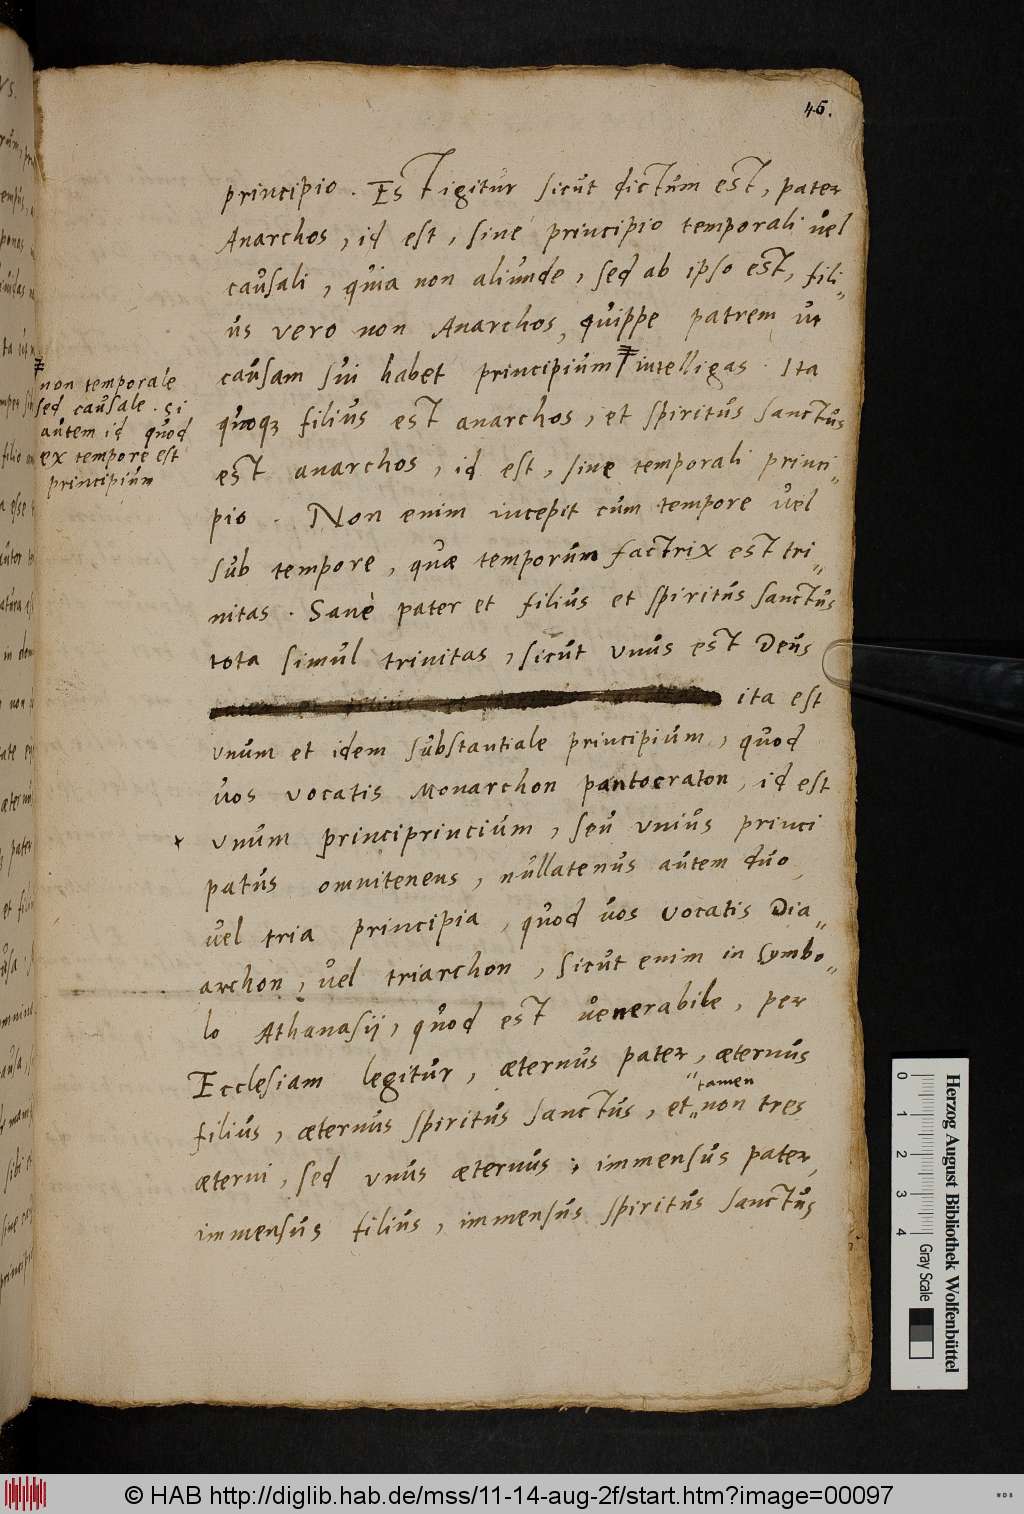 45.
principio. Est igitur sicut dictum est, pater
Anarchos, id est, sine principio temporali vel
causali, quia non aliunde, sed ab ipso est, fili„
us vero non Anarchos, quippe patrem ut
causam sui habet principium intelligas. Ita
quoqз filius est anarchos, et spiritus sanctus
est anarchos, id est, sine temporali princi„
pio. Non enim incepit cum tempore vel
sub tempore, quæ temporum factrix est tri„
nitas. Sanè pater et filius et spiritus sanctus
tota simul trinitas, sicut vnus est Deus
ita est
vnum et idem substantiale principium, quod
vos vocatis Monarchon pantocraton, id est
vnum principrincium, seu vnius princi
patus omnitenens, nullatenus autem duo,
vel tria principia, quod vos vocatis Dia„
archon, vel triarchon, sicut enim in symbo„
lo Athanasij, quod est venerabile, per
Ecclesiam legitur, æternus pater, æternus
filius, æternus spiritus sanctus, et „tamen„ non tres
æterni, sed vnus æternus; immensus pater,
immensus filius, immensus spiritus sanctus
non temporale
sed causale. si
autem id quod
ex tempore est
principium
0 1 2 3 4
Gray Scale
Herzog August Bibliothek Wolfenbüttel
© HAB http://diglib.hab.de/mss/11-14-aug-2f/start.htm?image=00097